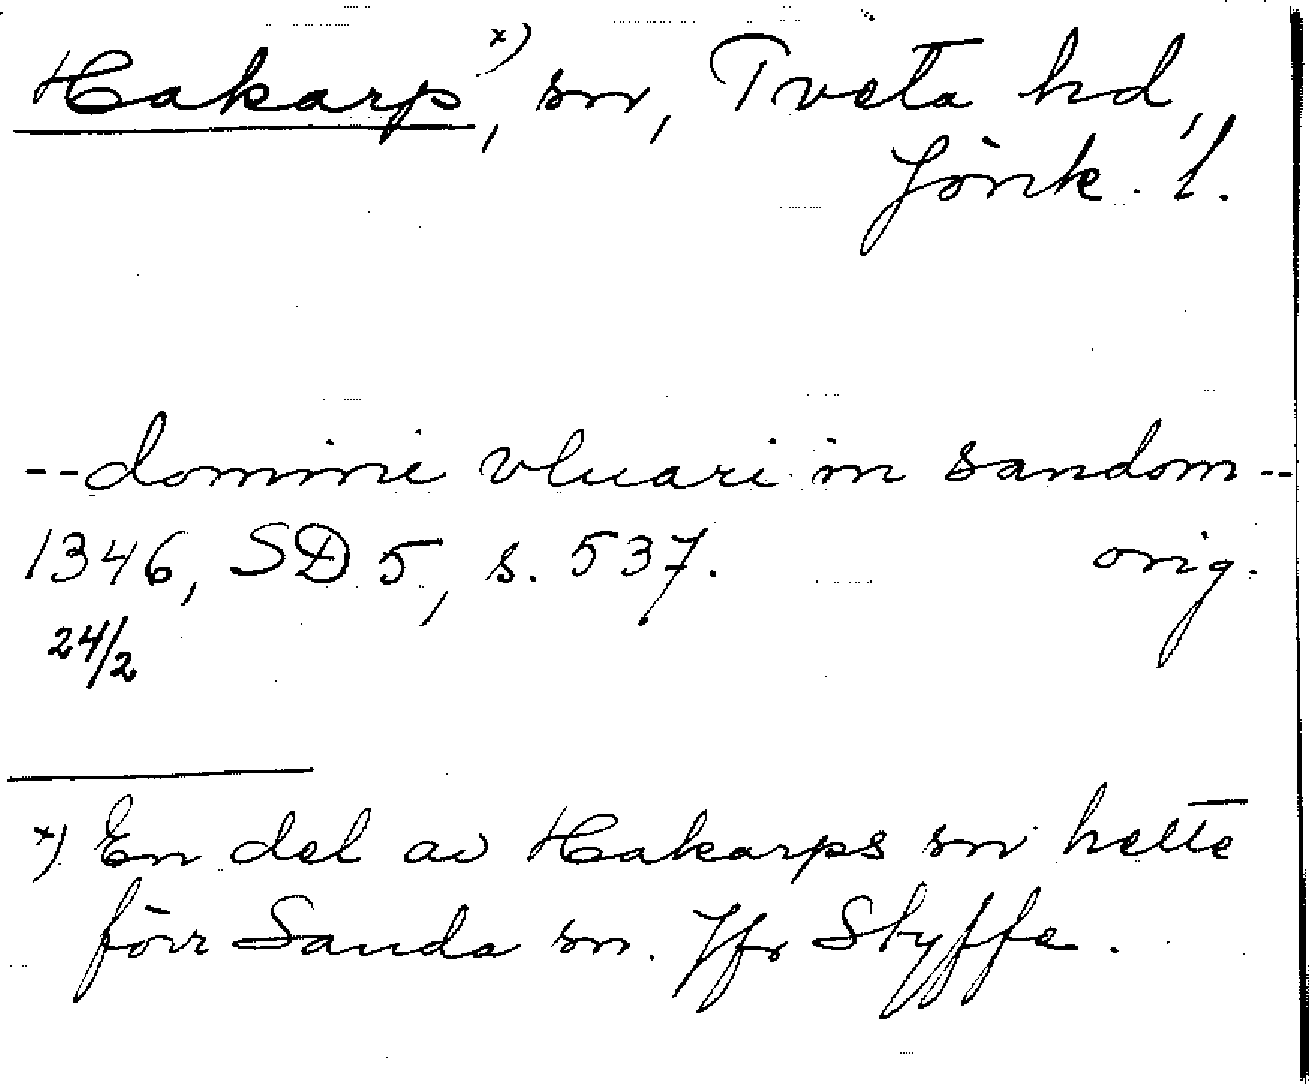 Hakarp x), sn, Tveta hd,
Jönk. l.
-- domini vluari in sandom --
1346, SD 5, s. 537. orig.
24/2
x) En del av Hakarps sn hette
förr Sanda sn. Jfr Styffe.